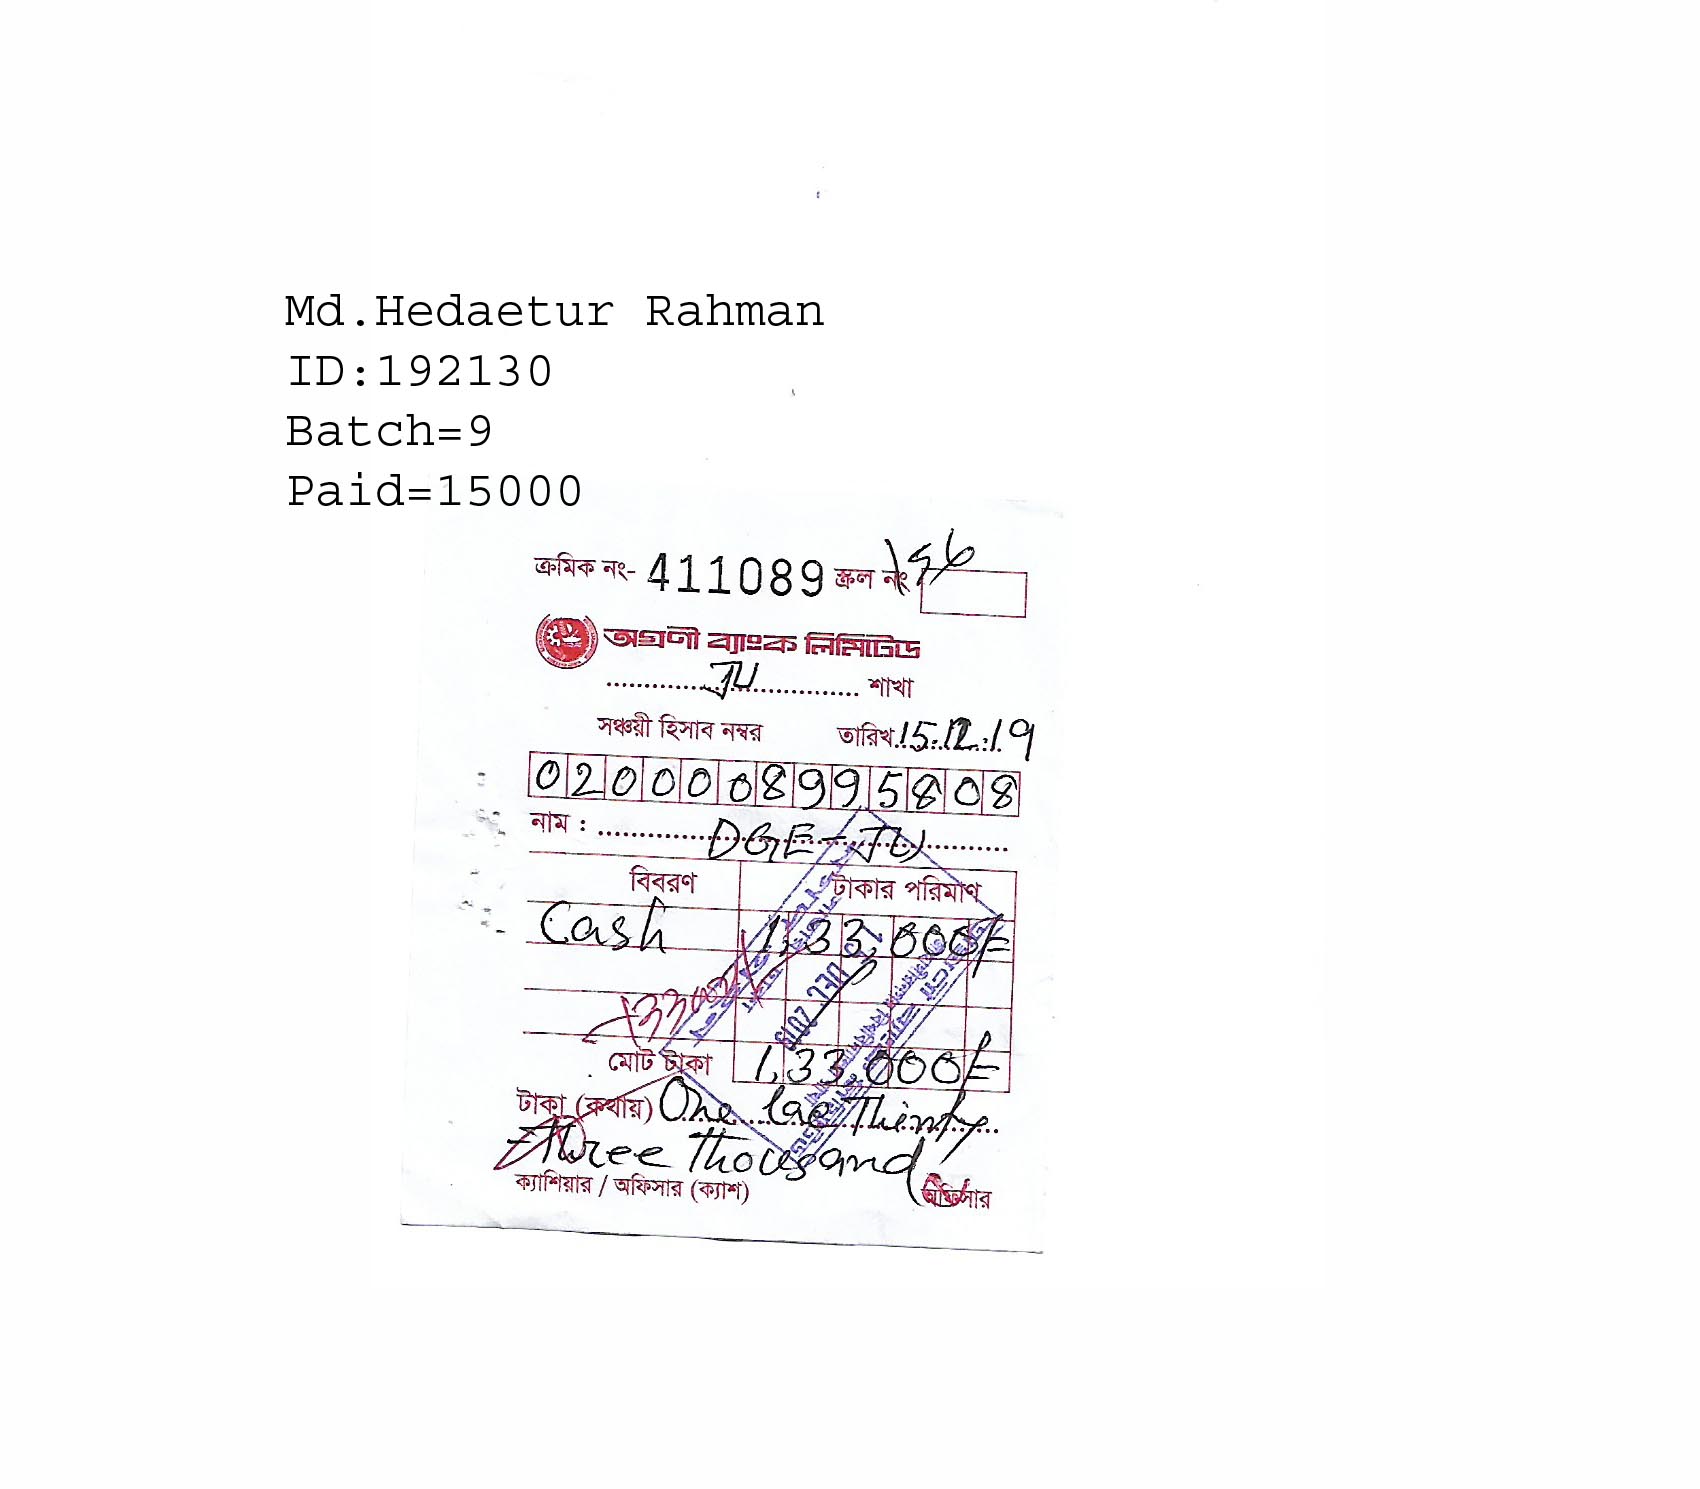 Md.Hedaetur Rahman
ID:192130
Batch=9
Paid=15000
ক্রমিক নং- 411089 স্ক্রল নং
অগ্রণী ব্যাংক লিমিটেড
JU শাখা
সঞ্চয়ী হিসাব নম্বর তারিখ 15.12.19
0200008995808
নাম : DGE-JU
বিবরণ টাকার পরিমাণ
Cash 1,33,000/=
133000/
DEC 2019
মোট টাকা 1,33,000/=
টাকা (কথায়) One lac Thirty
Three Thousand
ক্যাশিয়ার / অফিসার (ক্যাশ) অফিসার